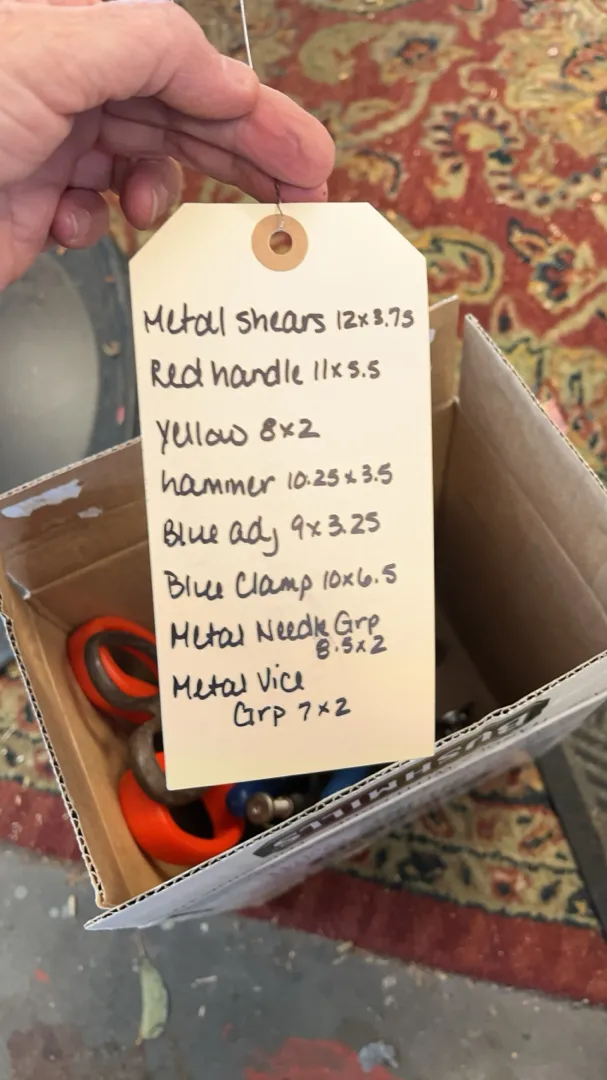 Metal shears 12x3.75
Red handle 11x5.5
Yellow 8x2
hammer 10.25x3.5
Blue adj 9x3.25
Blue Clamp 10x6.5
Metal Needle Grp
8.5x2
Metal Vice
Grp 7x2
BUSHMILLS